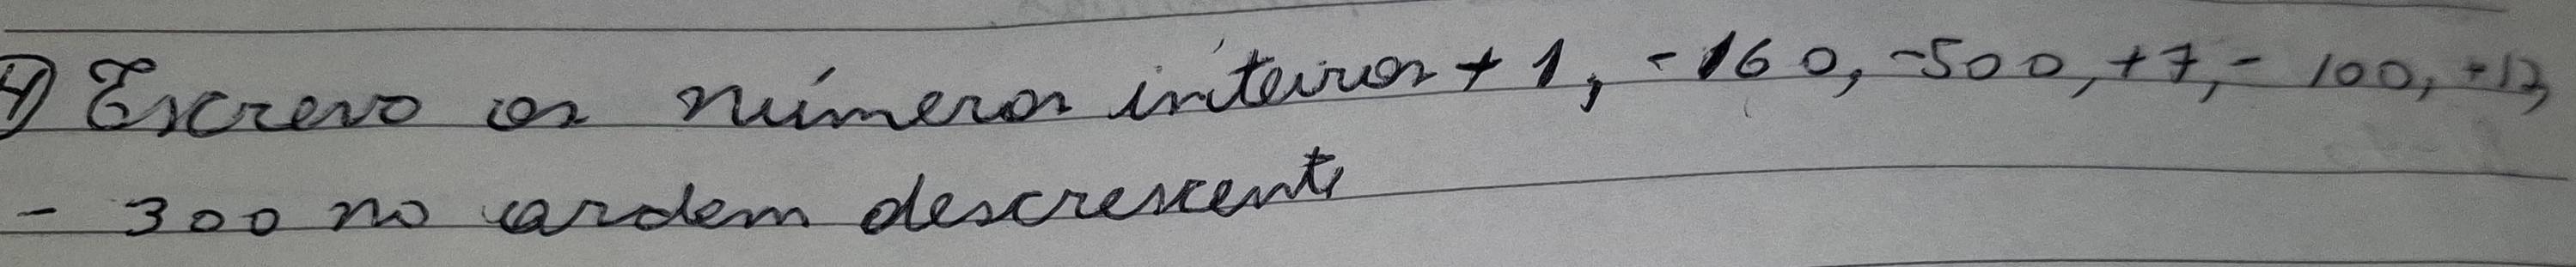 4) Escreva os números inteiros + 1, - 160, -500, +7, - 100, +12,
- 300 na ordem descrescente